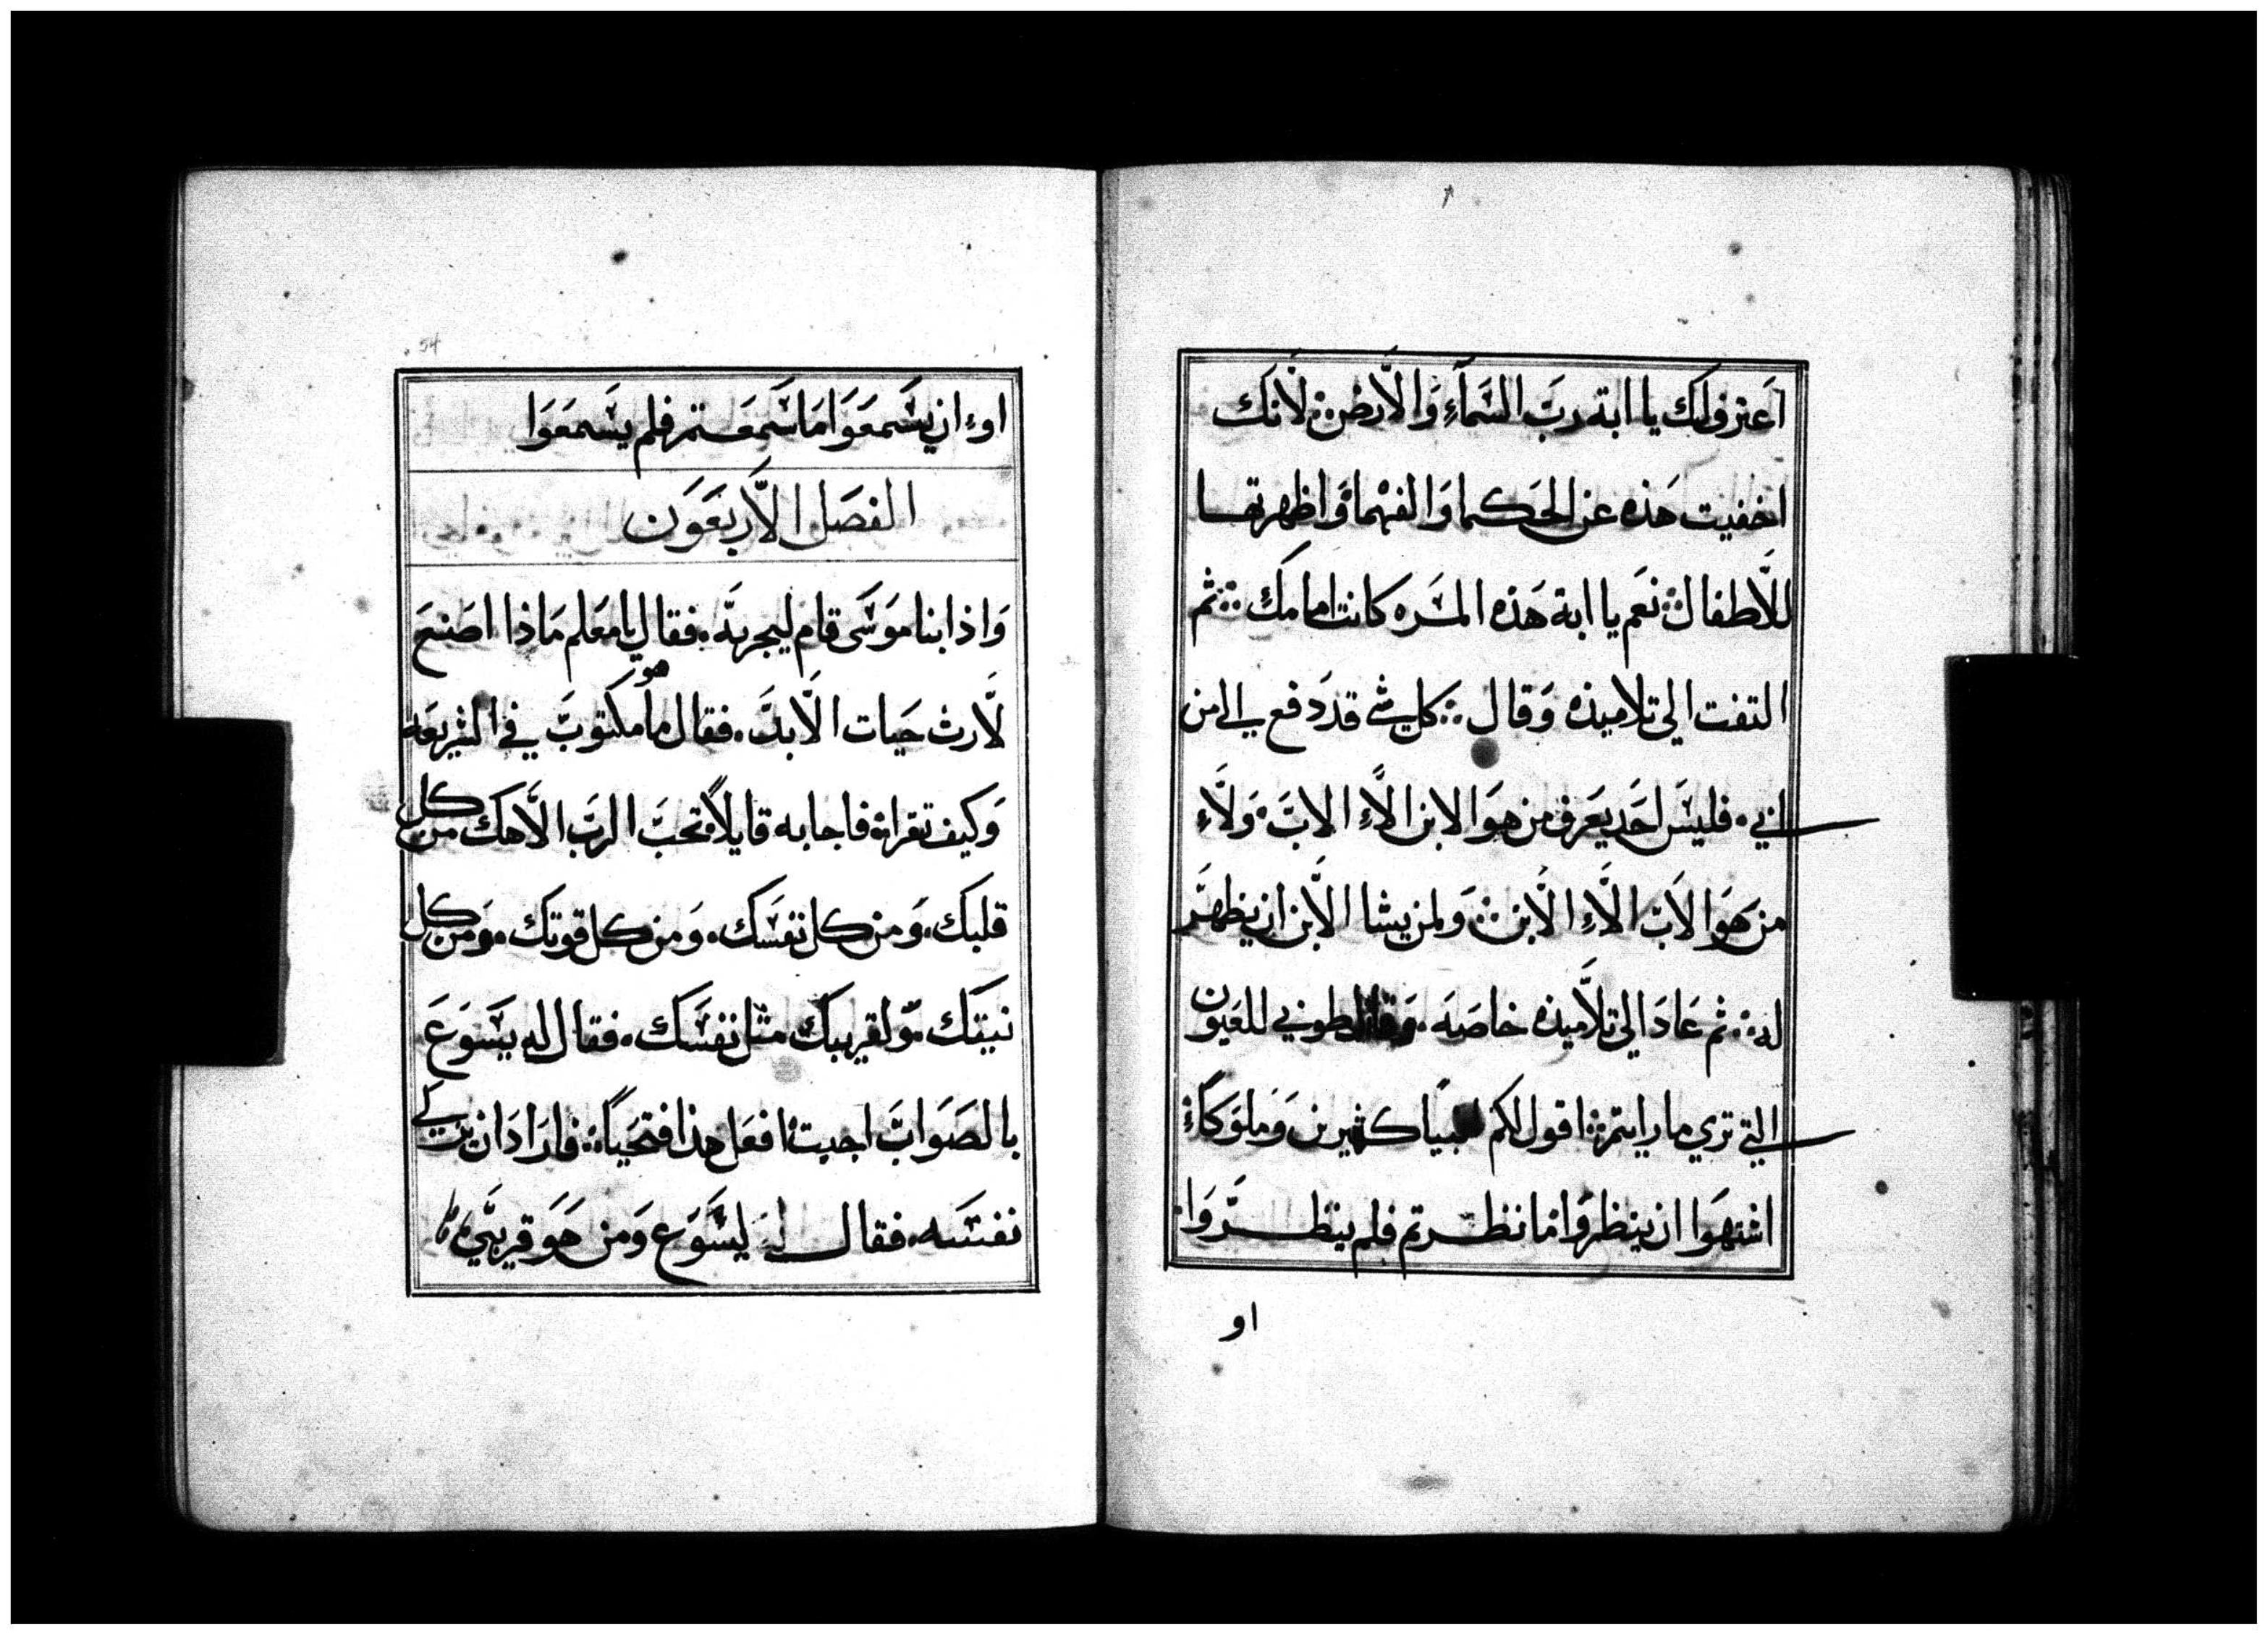 اعترف لك يا ابة ربَ السَمآءِ وَالاَرض ⁘ لاَنك
اخفيت هَذه عن الحَكما وَالفهْما وَاظهرتها
للاَطفال ⁘ نعَم يا ابة هَذه المسَره كانت امامك ⁘ ثم
التفت الي تلاميذه وَقال ⁘ كل شي قد دَفع الي من
ابي . فليسَ احَد يعَرف من هوَ الابن الاَّءِ الابَ . وَلاَءِ
من هَوَ الاَب الاَّءِ الاَبن ⁘ وَلمن يشا الاَبن ان يظهرَ
له ⁘ ثم عَادَ الي تلاَميذه خاصَه . وَقال طوبي للعَيون
التي تري ما رايتم ⁘ اقول لكم انبيًا كثيرين وَملوَكاءً
اشتهَوا ان ينظرَوا ما نظرتم فلم ينظرَوَا
او
54
اوءِ ان يسَمعَوَا مَا سَمعَتم فلم يسَمعَوَا
الفصَل الاَربعَوَن
وَاذا بناموَسَى قام ليجربهَ . فقال يا معَلم مَاذا اصَنعَ
لاَرث حَيات الاَبدَ . فقال ما هو مكتوبَ في الشريعَه
وَكيف تقراه فاجابه قايلاً تحَبَ الربَ الاَهك من كل
قلبك . وَمن كل نفسَك . وَمن كل قوتك . وَمن كل
نيتك . وَلقريبك مثل نفسَك . فقال له يسَوَعَ
بالصَوَابَ اجبت افعَل هذا فتحَياَ ⁘ فارَادَ ان يزكي
نفسَه . فقال له ليسَوَع وَمن هَوَ قريبَي